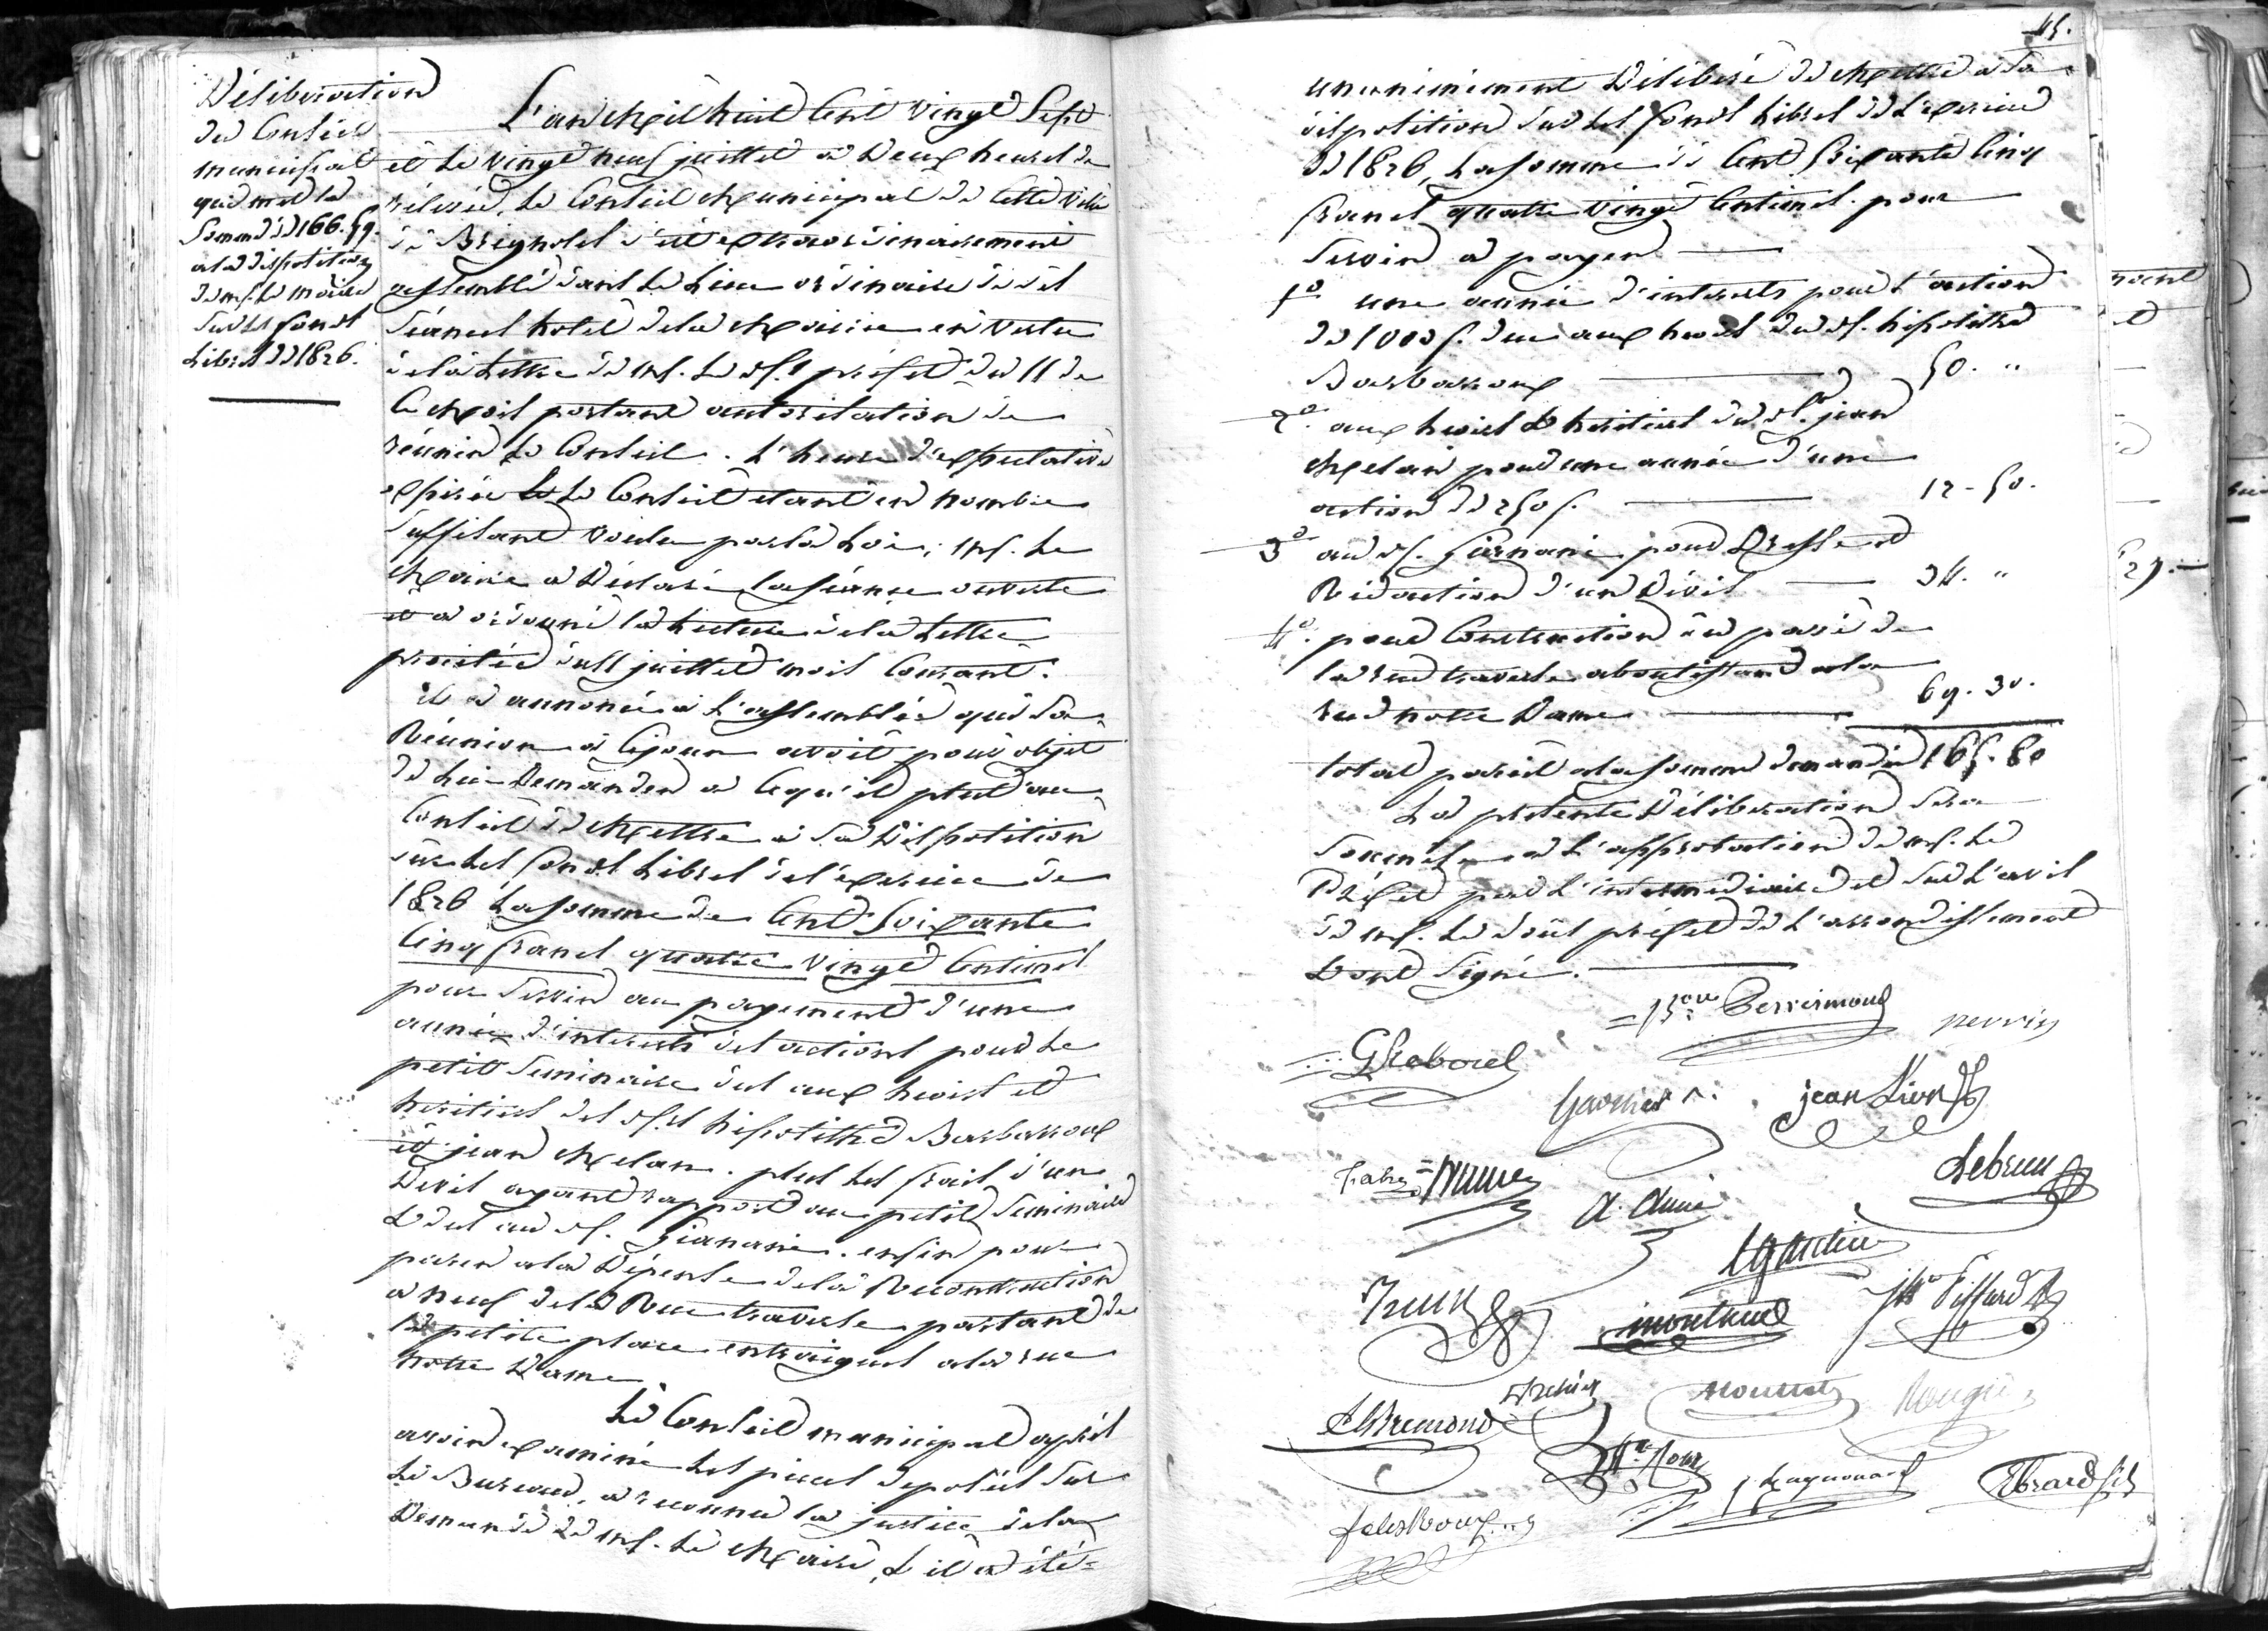 Déliberation
du Conseil
municipal
qui met la
Somme de 166.
a la disposition
de mr. le maire
sur les fonds
libres de 1826.
L'an Mil huit Cent vingt Sept
et le vingt neuf juillet à Deux heures de
rélevée, le Conseil Municipal de Cette ville
de Brignoles s'est extraordinairement
assemblé dans le lieu ordinaire de ses
Séances hotel de la Mairie en vertu
de la Lettre de mr. le préfet du 11 de
Ce Mois portant autorisation de
réunir le Conseil. L'heure d'expectative
expirée le Conseil étant en nombre
Suffisant voulu par la Loi, mr. le
Maire a Déclaré la séance ouverte
et a ordonné la lecture de la Lettre
précitée du 11 juillet mois Courant.
il a annoncé à L'assemblée que la
Réunion de Ce jour avoit pour objet
de lui Demander a Ce qu'il plut au
Conseil de Mettre a sa Disposition
sur les fonds Libres de l'exercice de
1826 La somme de Cent Soixante
Cinq francs quatre vingt Centimes
pour Servir au payement d'une
année d'interets des actions pour le
petit Seminaire dus aux hoirs et
heritiers des srs hipolithe Barbaroux
et jean Melan. plus les frais d'un
Devis ayant rapport au petit Seminaire
& dus au sr. Giranie. enfin pour
parer a la Dépense de la Reconstruction
a neuf de la Rue traverse partant de
la petite place entraigues a la rue
notre Dame
Le Conseil municipal après
avoir examiné les pieces deposées Sur
le Bureau, a reconnu la justice de la
Demande de mr. le Maire, & il a été
45.
unanimement Déliberé de Mettre a sa
disposition sur les fonds libres de L'exercice
de 1826, La somme de Cent Soixante Cinq
francs quatre vingt Centimes. pour
Servir a payer
1o une année d'interets pour L'action
de 1000 f. due aux hoirs du sr. hipolithe
Barbaroux 50. "
2o. aux hoirs & heritiers du sr. jean
Melan pour une année d'une
action de 250 f. 12-50.
3o au sr. Giranie pour Dresse et
Redaction d'un Devis 34. "
4o. pour Construction du pavé de
la rue traverse aboutissant a la
rue notre Dame 69.30.
total pareil a la somme demandée 165.80
La presente Déliberation Sera
Soumise a L'approbation de mr. le
Préfet par L'intermediaire et Sur L'avis
de mr. le Sous préfet de L'arrondissement
& ont Signé.
Perreimond
perrin
G Reboul
Garnier
jean Lion
Fabre
Lebrun
A. Amic
montaud
Piffard
Bremond
Rougier
Jh Roux
Raynouard
Ebrard fils